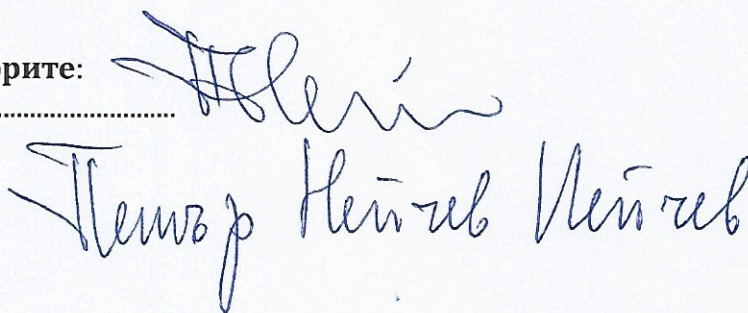 орите:
..............................
Петър Нейчев Нейчев